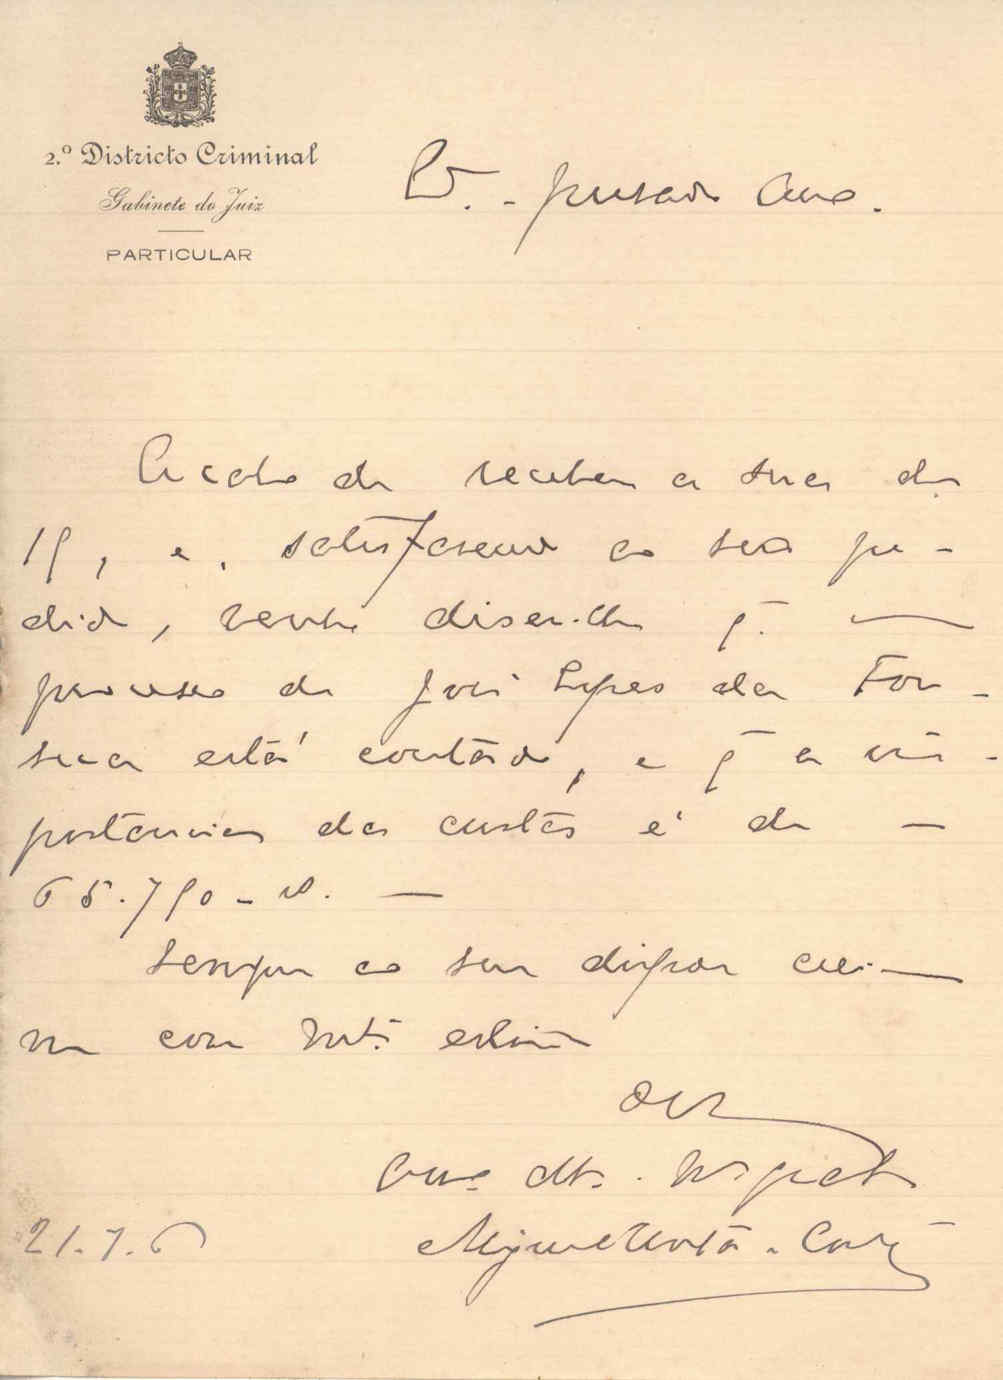 2.º Districto Criminal
Gabinete do Juiz
PARTICULAR
presado Amo.
Acabo de receber a sua de
19, e, satisfasendo ao seu pe-
dido, venho diser-lhe q.
processo de José Lopes da Fon-
seca está contado, e q a im-
portancia das custas é de —
65.790-rs. —
Sempre ao seu dispor creia-
me com mta estima
Amo. At.
Miguel Horta e Costa
21.7.